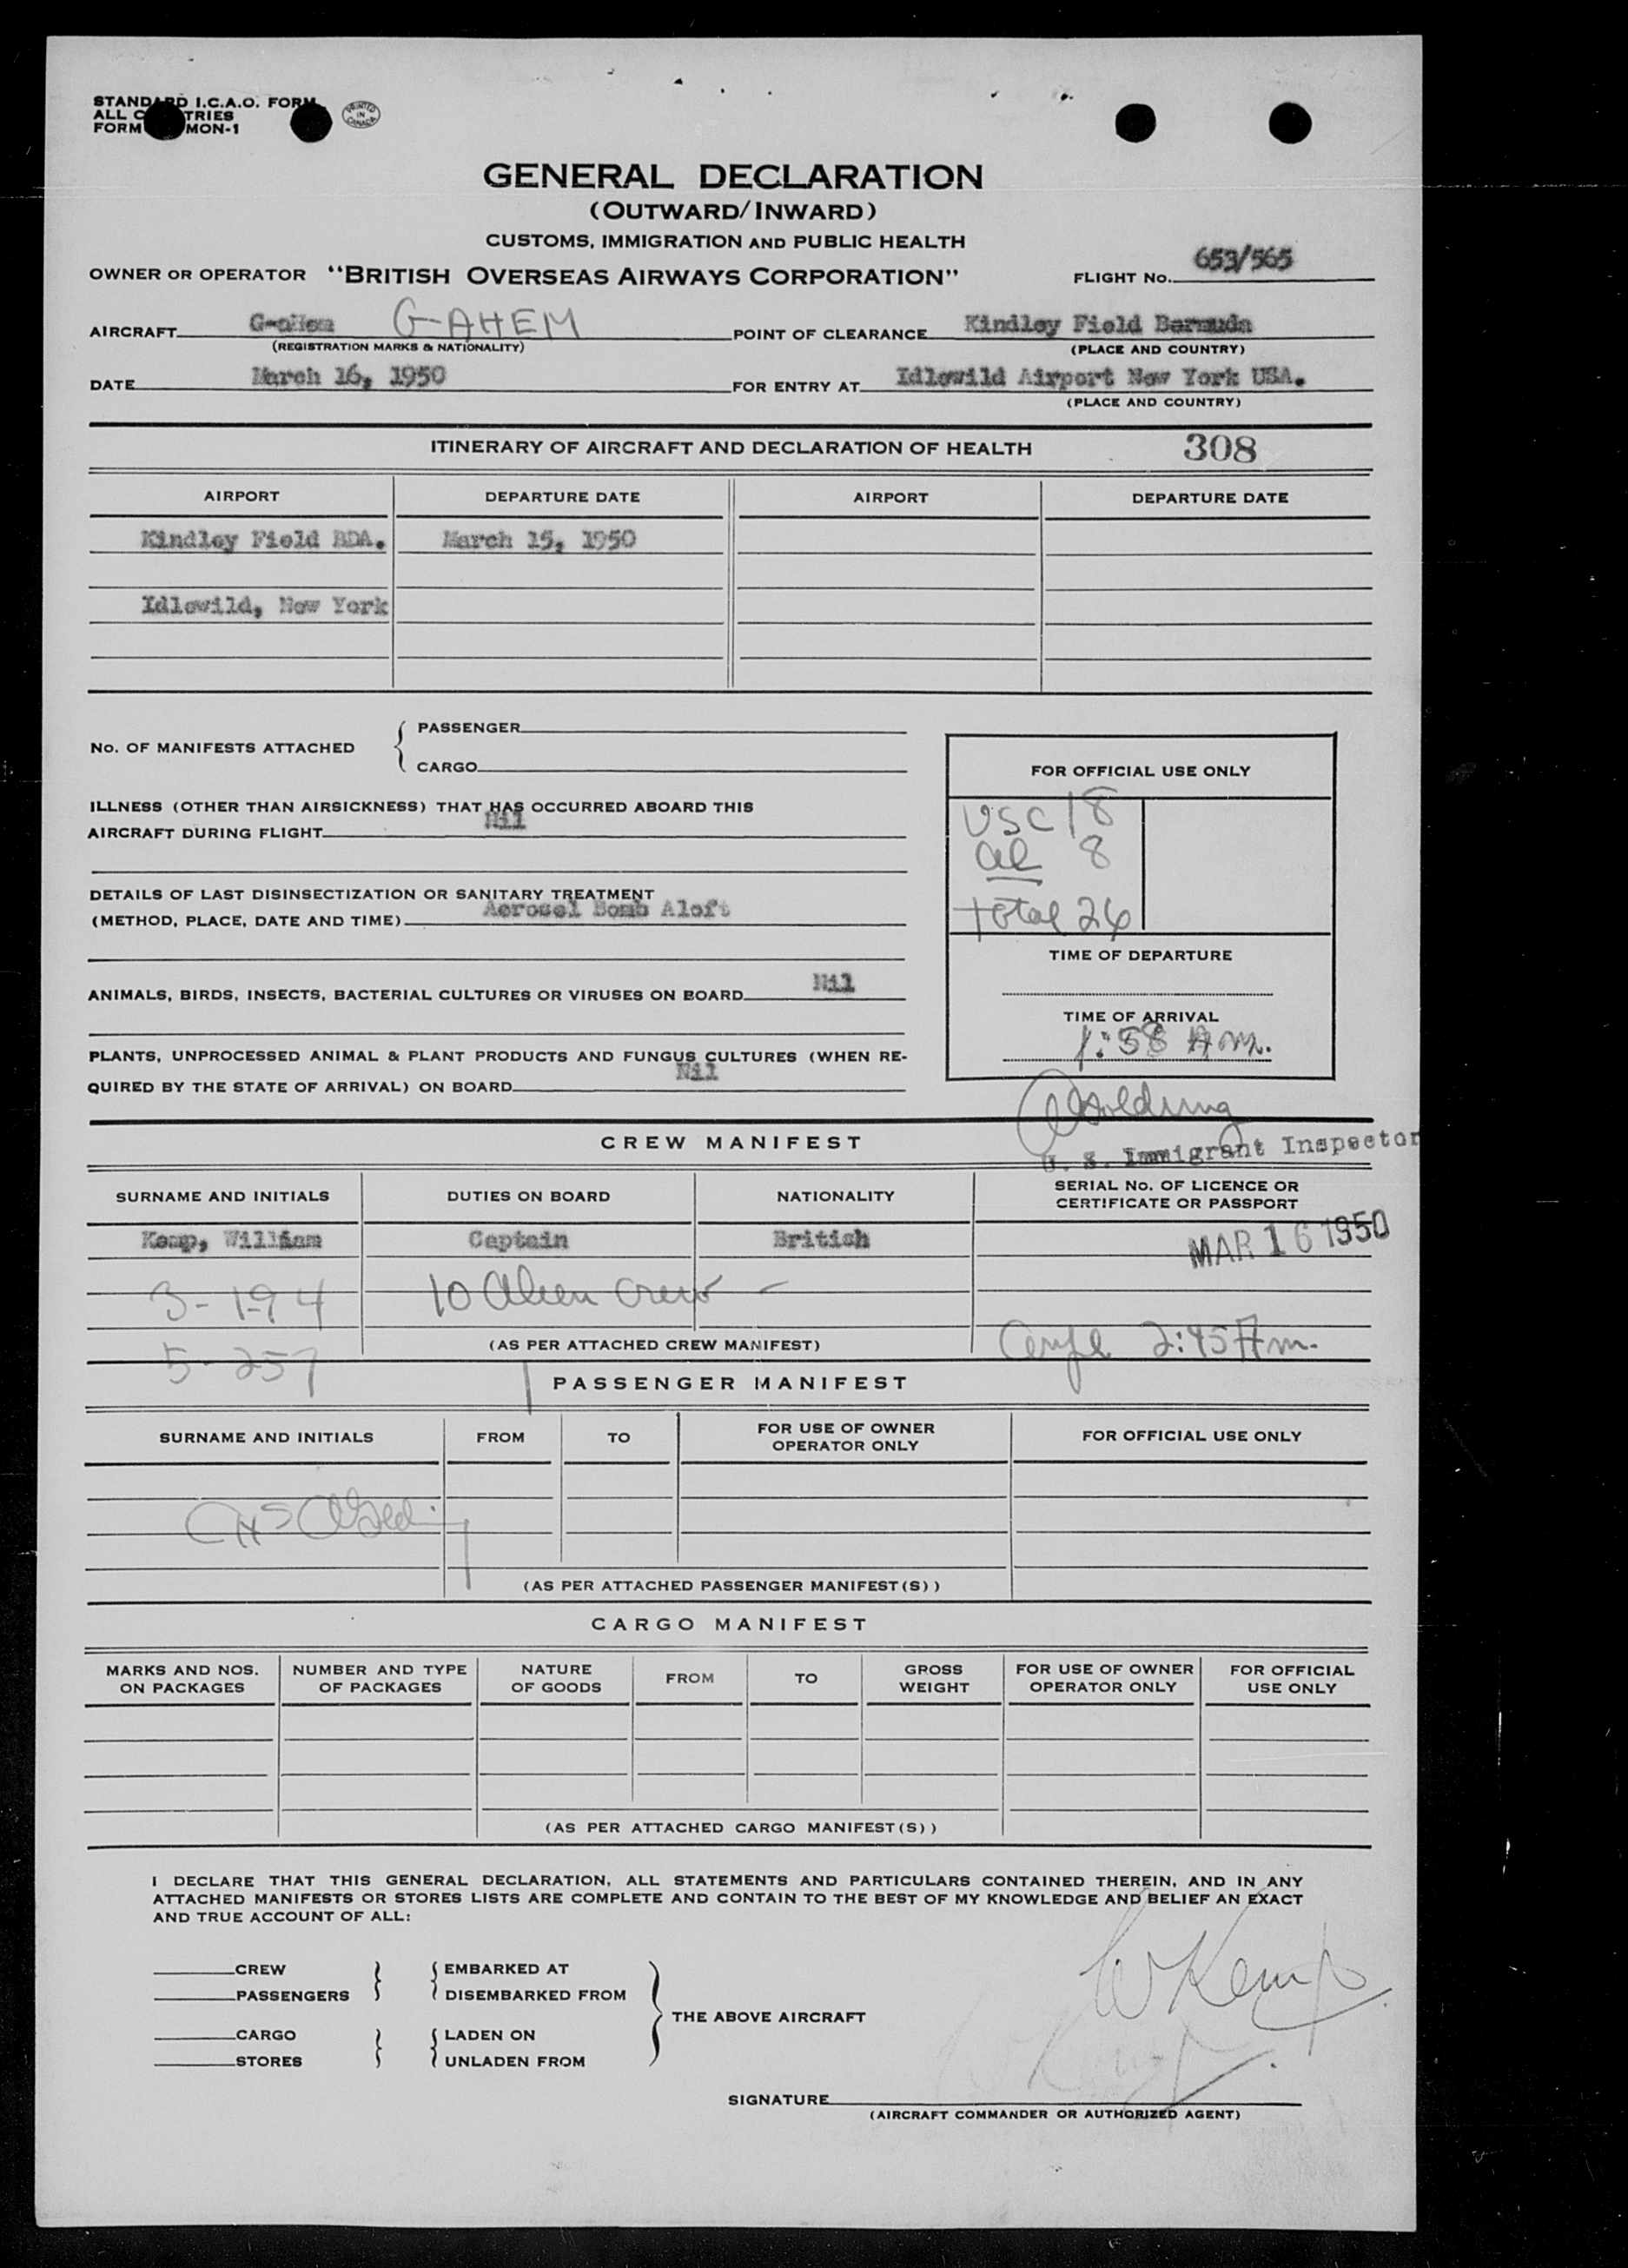 STANDARD I.C.A.O. FORM
ALL COUNTRIES
FORM MON-1
PRINTED IN CANADA
GENERAL DECLARATION
(OUTWARD/INWARD)
CUSTOMS, IMMIGRATION AND PUBLIC HEALTH
OWNER OR OPERATOR "BRITISH OVERSEAS AIRWAYS CORPORATION" FLIGHT No. 653/565
AIRCRAFT G-aHem G-AHEM POINT OF CLEARANCE Kindley Field Bermuda
(REGISTRATION MARKS & NATIONALITY) (PLACE AND COUNTRY)
DATE March 16, 1950 FOR ENTRY AT Idlewild Airport New York USA.
(PLACE AND COUNTRY)
ITINERARY OF AIRCRAFT AND DECLARATION OF HEALTH 308
AIRPORT DEPARTURE DATE AIRPORT DEPARTURE DATE
Kindley Field BDA. March 15, 1950
Idlewild, New York
No. OF MANIFESTS ATTACHED PASSENGER
CARGO
ILLNESS (OTHER THAN AIRSICKNESS) THAT HAS OCCURRED ABOARD THIS
AIRCRAFT DURING FLIGHT Nil
DETAILS OF LAST DISINSECTIZATION OR SANITARY TREATMENT
(METHOD, PLACE, DATE AND TIME) Aerosel Bomb Aloft
ANIMALS, BIRDS, INSECTS, BACTERIAL CULTURES OR VIRUSES ON BOARD Nil
PLANTS, UNPROCESSED ANIMAL & PLANT PRODUCTS AND FUNGUS CULTURES (WHEN RE-
QUIRED BY THE STATE OF ARRIVAL) ON BOARD Nil
FOR OFFICIAL USE ONLY
USC 18
al 8
total 26
TIME OF DEPARTURE
TIME OF ARRIVAL
1:58 Am.
U. S. Immigrant Inspector
CREW MANIFEST
SURNAME AND INITIALS DUTIES ON BOARD NATIONALITY SERIAL No. OF LICENCE OR
CERTIFICATE OR PASSPORT
Kemp, William Captain British MAR 16 1950
3-194 10 Alien Crew -
(AS PER ATTACHED CREW MANIFEST) 2:45 Am.
5-257
PASSENGER MANIFEST
SURNAME AND INITIALS FROM TO FOR USE OF OWNER
OPERATOR ONLY FOR OFFICIAL USE ONLY
(AS PER ATTACHED PASSENGER MANIFEST(S))
CARGO MANIFEST
MARKS AND NOS.
ON PACKAGES NUMBER AND TYPE
OF PACKAGES NATURE
OF GOODS FROM TO GROSS
WEIGHT FOR USE OF OWNER
OPERATOR ONLY FOR OFFICIAL
USE ONLY
(AS PER ATTACHED CARGO MANIFEST(S))
I DECLARE THAT THIS GENERAL DECLARATION, ALL STATEMENTS AND PARTICULARS CONTAINED THEREIN, AND IN ANY
ATTACHED MANIFESTS OR STORES LISTS ARE COMPLETE AND CONTAIN TO THE BEST OF MY KNOWLEDGE AND BELIEF AN EXACT
AND TRUE ACCOUNT OF ALL:
CREW EMBARKED AT
PASSENGERS DISEMBARKED FROM
THE ABOVE AIRCRAFT
CARGO LADEN ON
STORES UNLADEN FROM
W Kemp
W Kemp
SIGNATURE
(AIRCRAFT COMMANDER OR AUTHORIZED AGENT)